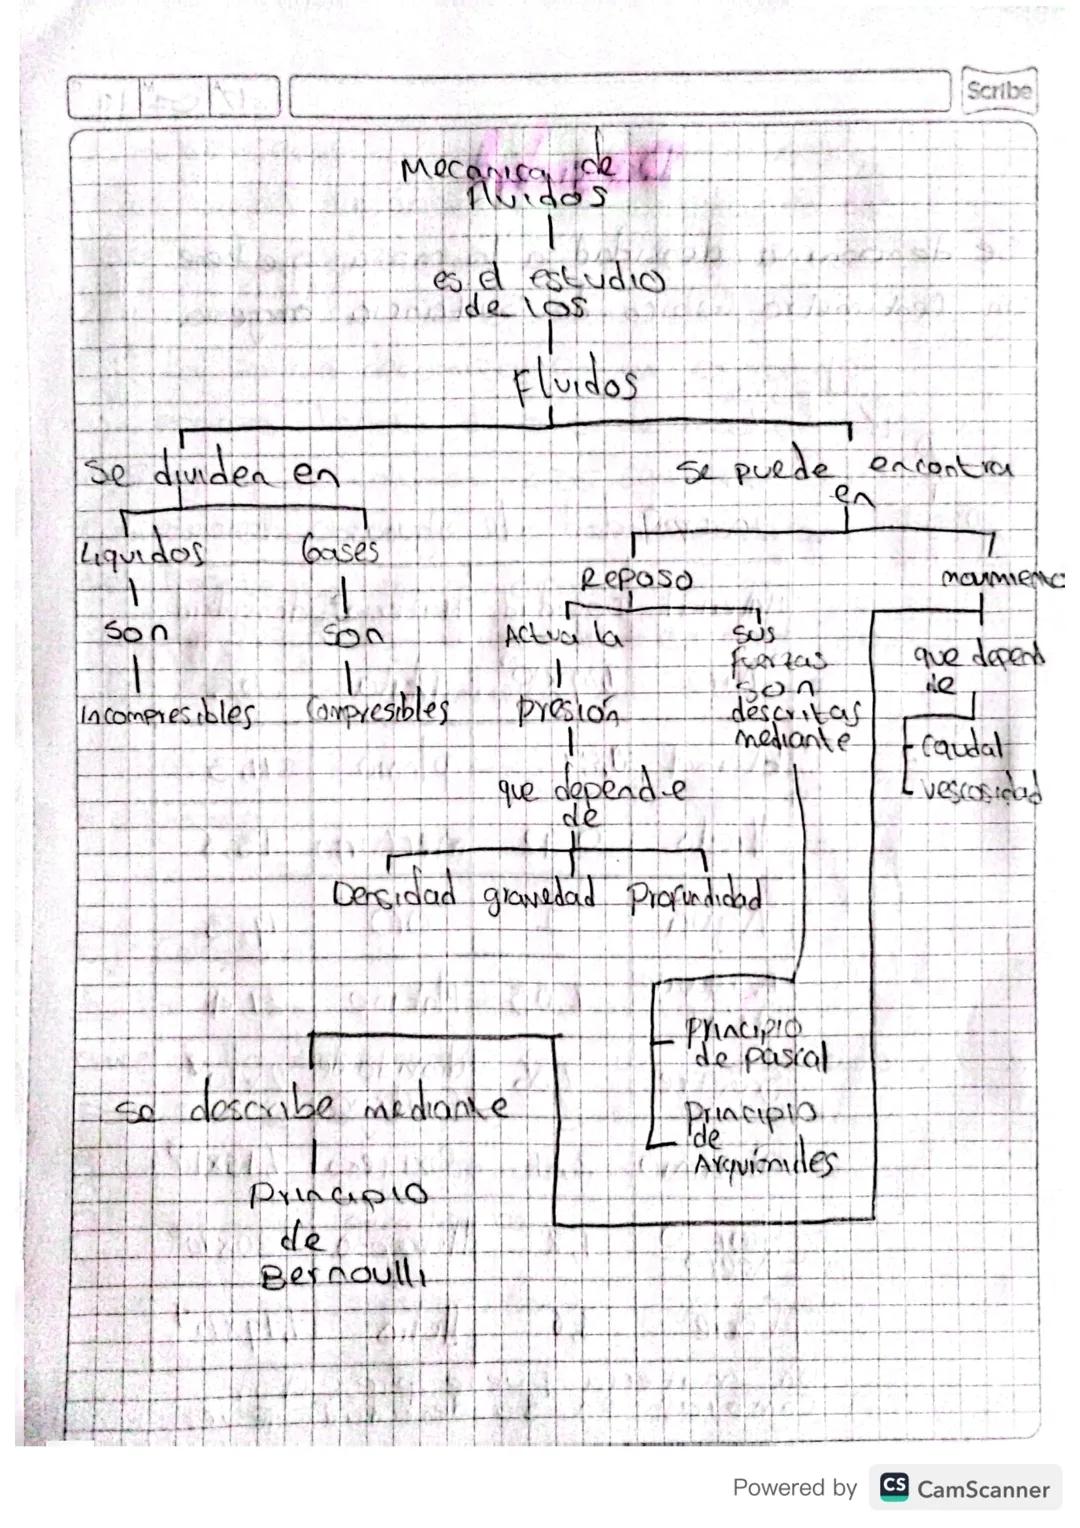 Scribe
Mecanica de
fluidos
es el estudio
de los
Fluidos
se dividen en
se puede encontra
en
Liquidos
Gases
Reposo
movimiento
son
son
Actua la
sus
fuerzas
son
descritas
mediante
que depend
de
incompresibles
Compresibles
presión
caudal
vescosidad
que depende
de
Densidad gravedad Profundidad
principio
de pascal
Principio
de
Arquimides
se describe mediante
Principio
de
Bernoulli
Powered by CS CamScanner